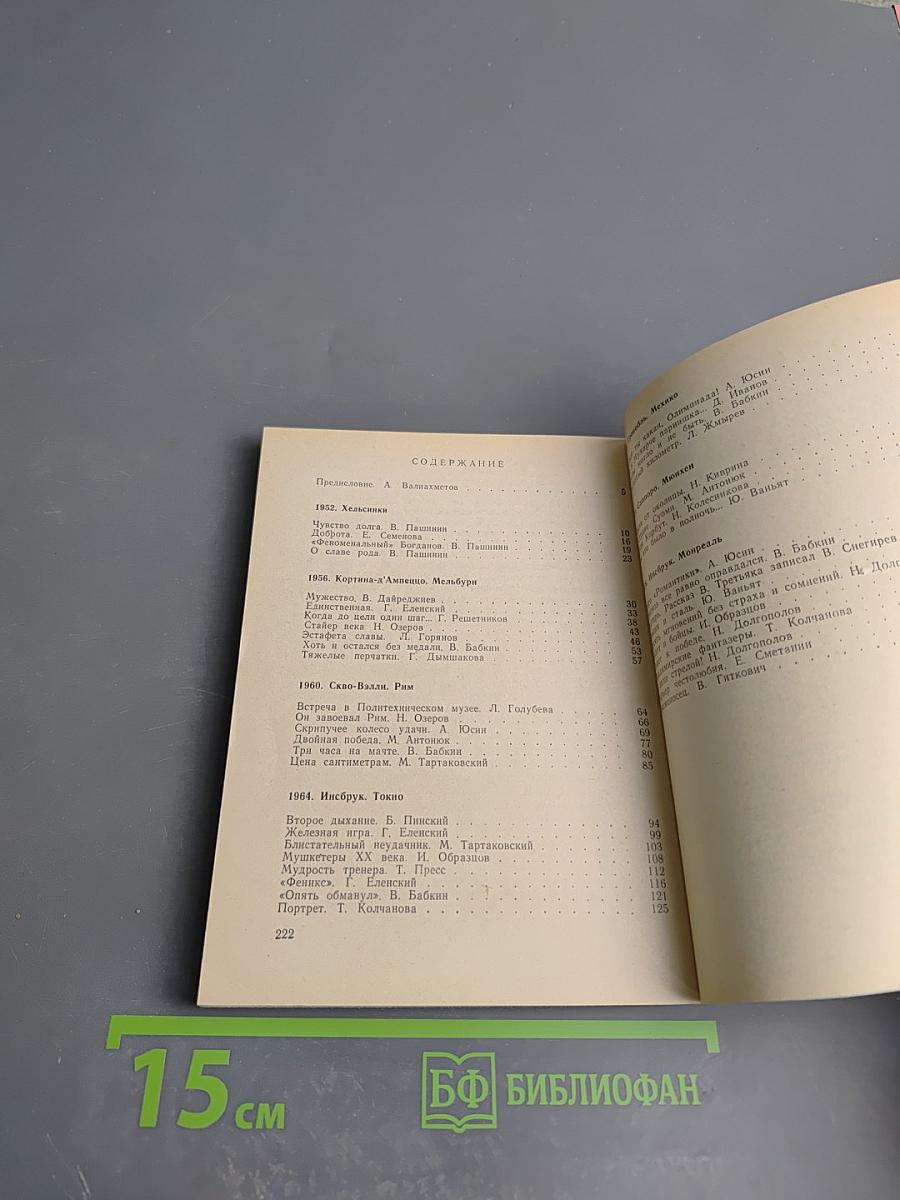 СОДЕРЖАНИЕ
Предисловие. А. Валиахметов 5
1952. Хельсинки
Чувство долга. В. Пашинин 10
Доброта. Е. Семенова 16
«Феноменальный» Богданов. В. Пашинин 19
О славе рода. В. Пашинин 23
1956. Кортина-д'Ампеццо. Мельбурн
Мужество. В. Дайреджиев 30
Единственная. Г. Еленский 33
Когда до цели один шаг... Г. Решетников 38
Стайер века Н. Озеров 43
Эстафета славы. Л. Горянов 46
Хоть и остался без медали. В. Бабкин 53
Тяжелые перчатки. Г. Дымшакова 57
1960. Скво-Вэлли. Рим
Встреча в Политехническом музее. Л. Голубева 64
Он завоевал Рим. Н. Озеров 66
Скрипучее колесо удачи. А. Юсин 69
Двойная победа. М. Антонюк 77
Три часа на мачте. В. Бабкин 80
Цена сантиметрам. М. Тартаковский 85
1964. Инсбрук. Токио
Второе дыхание. Б. Пинский 94
Железная игра. Г. Еленский 99
Блистательный неудачник. М. Тартаковский 103
Мушкетеры XX века. И. Образцов 108
Мудрость тренера. Т. Пресс 112
«Феникс». Г. Еленский 116
«Опять обманул». В. Бабкин 121
Портрет. Т. Колчанова 125
222
Мехико
ты какая, Олимпиада! А. Юсин
парнишка... Д. Иванов
могло и не быть. В. Бабкин
километр. Л. Жмырев
Саппоро. Мюнхен
от околицы. Н. Киврина
Суоми. М. Антонюк
Корбут. Н. Колесникова
было в полночь... Ю. Ваньят
Инсбрук. Монреаль
«Романтики». А. Юсин
все равно оправдался. В. Бабкин
Рассказ В. Третьяка записал В. Снегирев
и сталь. Ю. Ваньят
мгновений без страха и сомнений. Н.
и бойцы. И. Образцов
к победе. Н. Долгополов
фантазеры. Т. Колчанова
стрелой! Н. Долгополов
честолюбия. Е. Сметанин
В. Гиткович
15 см
БФ БИБЛИОФАН